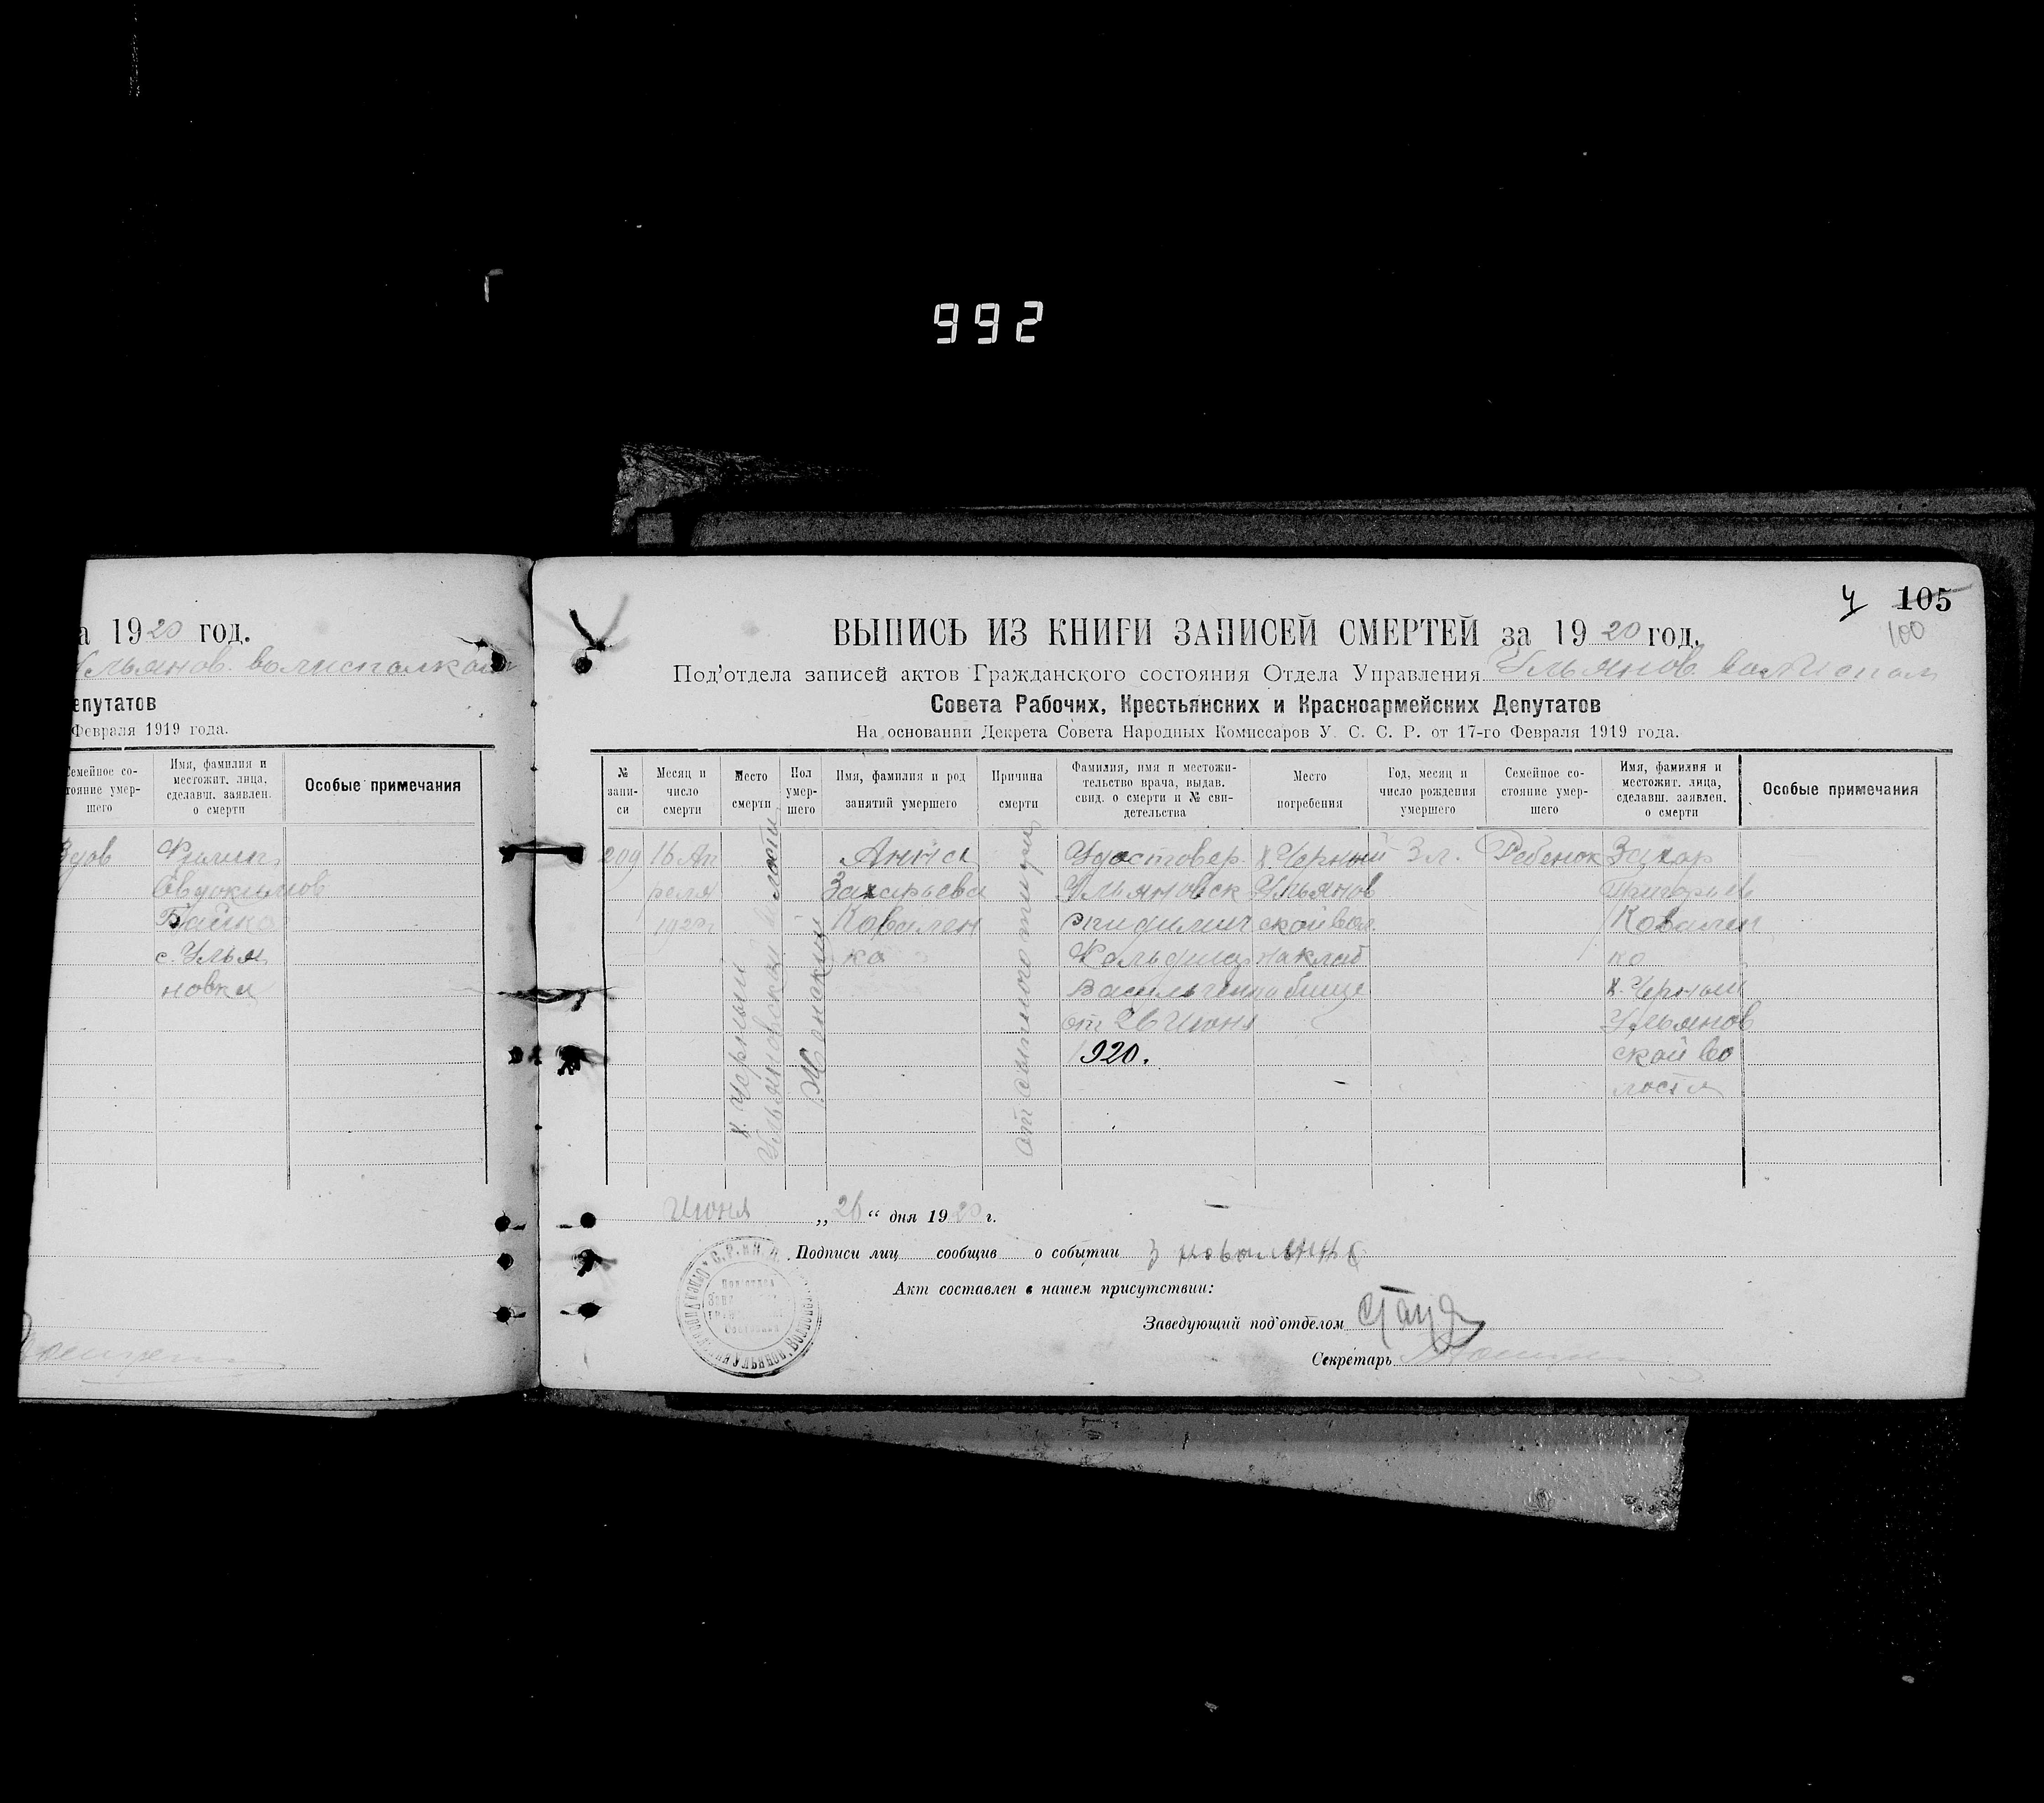 992
а 1920 год.
Ульянов. волисполком
епутатов
Февраля 1919 года.
Семейное со-
тояние умер-
шего
Имя, фамилия и
местожит. лица,
сделавш. заявлен.
о смерти
Особые примечания
Вдов
Филип
Евдокимов
Байко
с. Улья
новки
ч 105
100
ВЫПИСЬ ИЗ КНИГИ ЗАПИСЕЙ СМЕРТЕЙ за 1920 год.
Под'отдела записей актов Гражданского состояния Отдела Управления Ульянов. волисполк
Совета Рабочих, Крестьянских и Красноармейских Депутатов
На основании Декрета Совета Народных Комиссаров У. С. С. Р. от 17-го Февраля 1919 года.
№
запи-
си
Месяц и
число
смерти
Место
смерти
Пол
умер-
шего
Имя, фамилия и род
занятий умершего
Причина
смерти
Фамилия, имя и местожи-
тельство врача, выдав.
свид. о смерти и № сви-
детельства
Место
погребения
Год, месяц и
число рождения
умершего
Семейное со-
стояние умер-
шего
Имя, фамилия и
местожит. лица,
сделавш. заявлен.
о смерти
Особые примечания
209
16 Ап
реля
1920 г
х. Черный
Ульяновской волости
Женский
Анна
Захарьева
Ковален
ко
от сыпного тифа
Удостовер.
Ульяновск
эпидемич
Фельдше
Васильченко
от 26 июня
1920.
х Черный
Ульянов
ской вол.
на клад
бище
3 л.
Ребенок
Захар
Григорьев
Ковален
ко
х. Черный
Ульянов
ской во
лости
Июня „26“ дня 1920 г.
Подписи лиц сообщив о событии З Коваленко
Акт составлен в нашем присутствии:
Заведующий под'отделом
Секретарь